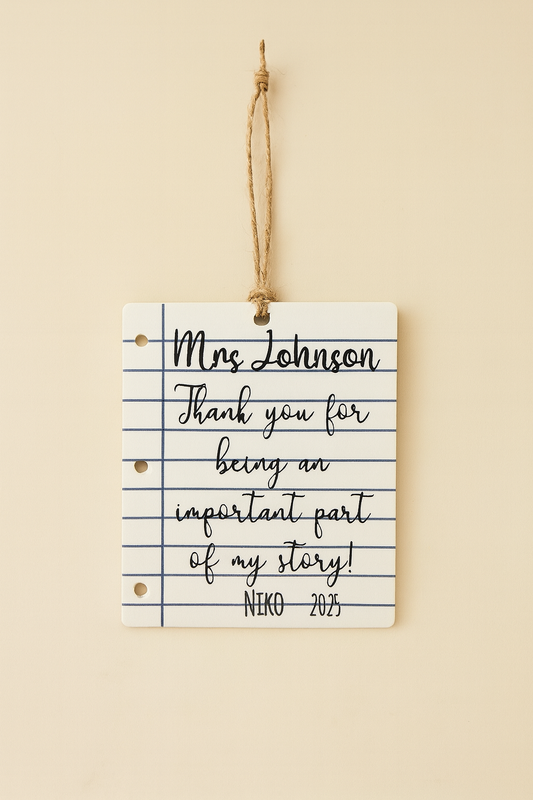 Mrs Johnson
Thank you for
being an
important part
of my story!
NIKO 2025